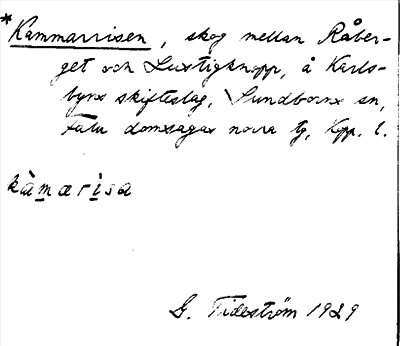 *Kammarrisen, skog mellan Råber-
get och Lustigknopp, å Karls-
byns skifteslag, Sundborns sn,
Falu domsagas norra tg, Kpp. l.
kàmærìsa
G. Tideström 1929